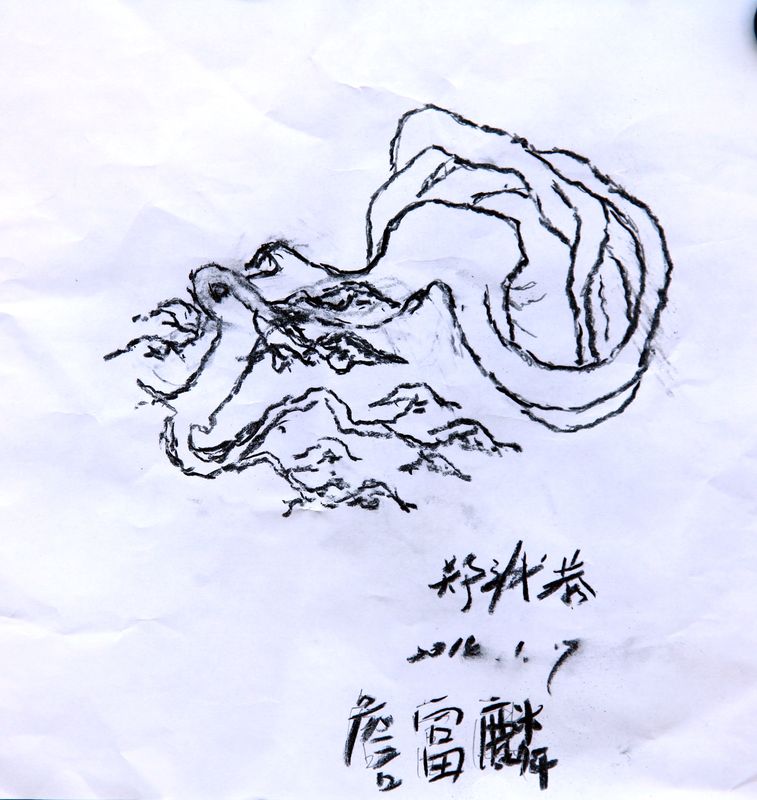 郑诚恭
2016.1.7
詹富麟